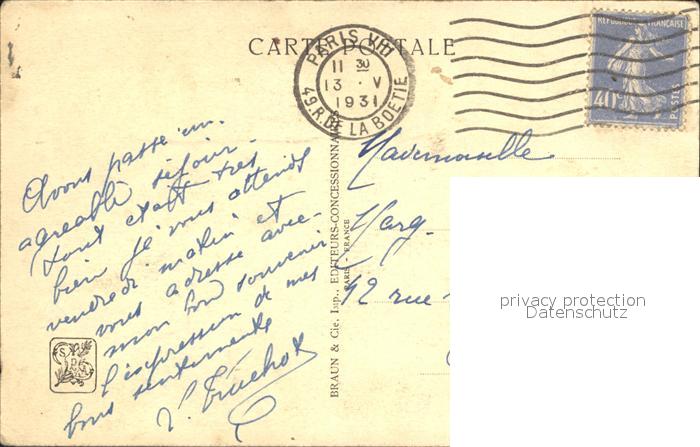 CARTE POSTALE
PARIS VIII
11 30
13 · V
1931
49.R. DE LA BOETIE
REPUBLIQUE FRANÇAISE
40c
POSTES
Avons passé un
agréable séjour.
tout était très
bien je vous attends
vendredi matin et
vous adresse avec
mon bon souvenir
l'expression de mes
bons sentiments
V. Truchot
BRAUN & Cie, Imp., EDITEURS-CONCESSIONNAIRES
PARIS - FRANCE
Mademoiselle
Marg.
42 rue
privacy protection
Datenschutz